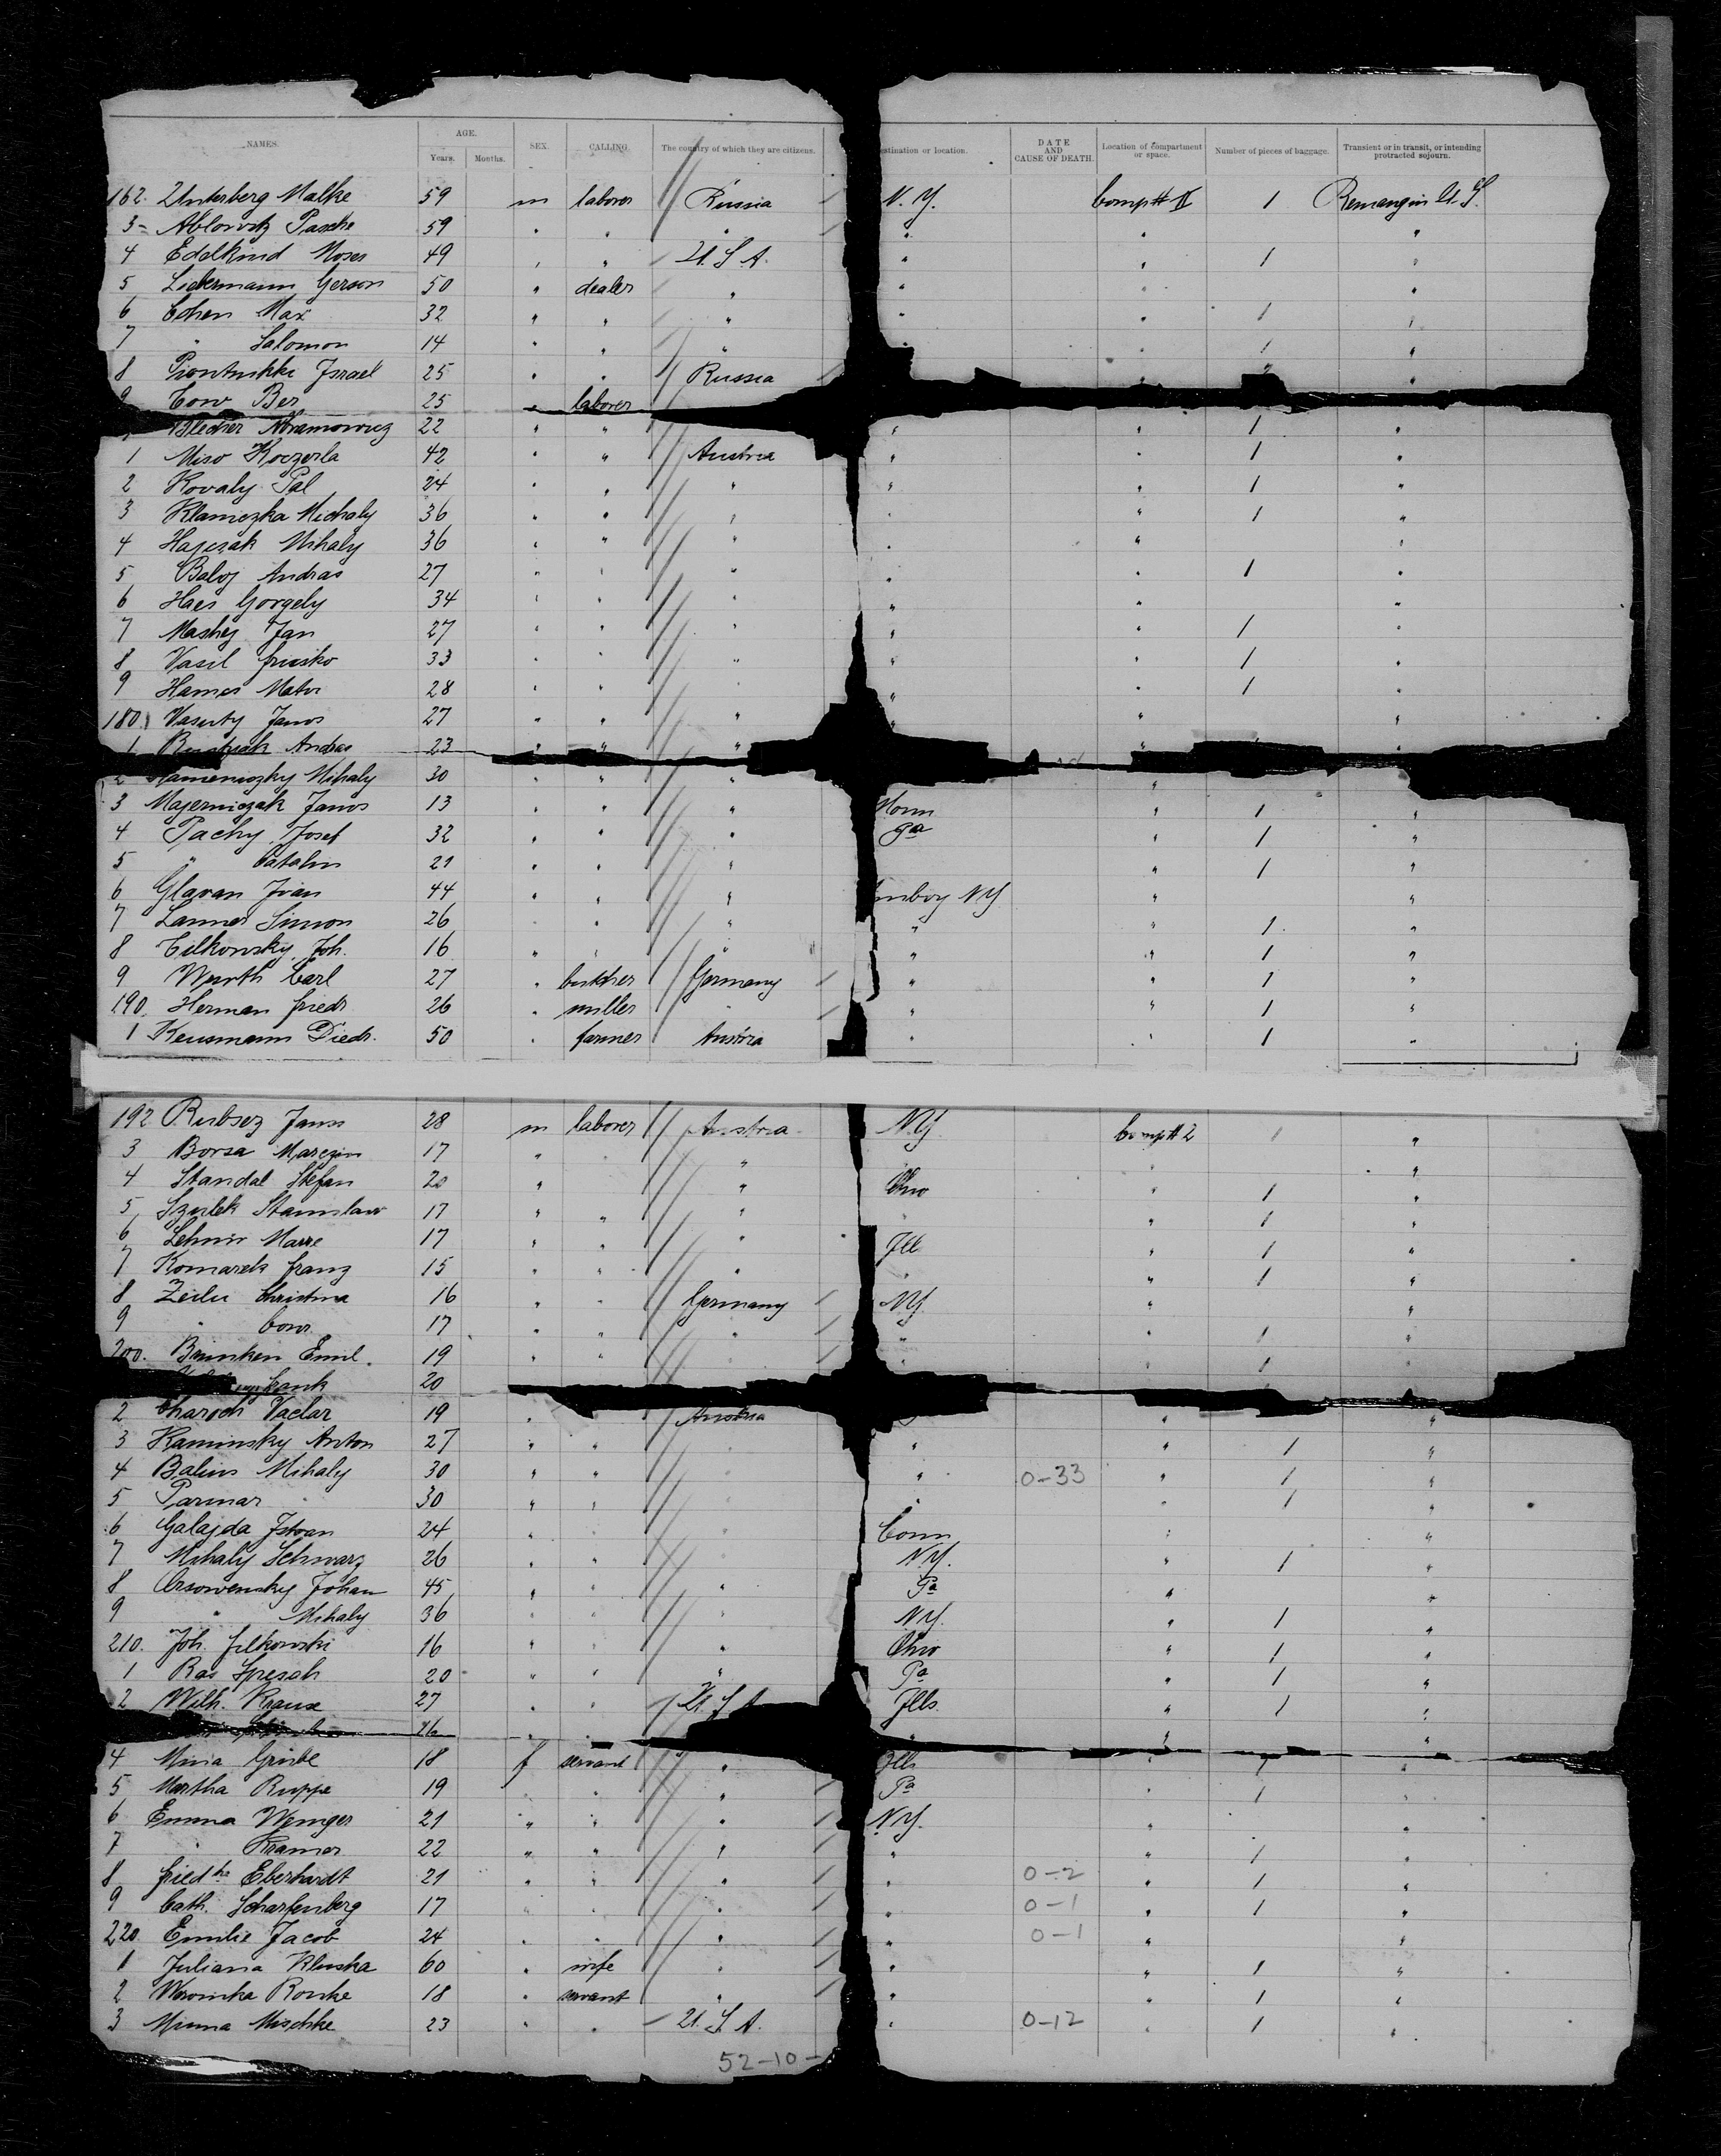 NAMES. AGE. Years. Months. SEX. CALLING. The country of which they are citizens. stination or location. DATE AND CAUSE OF DEATH. Location of compartment or space. Number of pieces of baggage. Transient or in transit, or intending protracted sojourn.
162. Unterberg Malke 59 m laborer Russia N.Y. Compt II 1 Remangin U.S.
3 Ablowitz Pasche 59 " " " " " "
4 Edelkind Moses 49 " " U.S.A. " " 1 "
5 Liebermann Gerson 50 " dealer " " " "
6 Cohen Max 32 " " " " " 1 "
7 " Salomon 14 " " " " 1 "
8 Israel 25 " " Russia " "
9 Ber 25 " laborer
Abramowicz 22 " " " " 1 "
1 Miso Koczerla 42 " " Austria " " 1 "
2 Kovaly Pal 24 " " " " " 1 "
3 Klamczka Michaly 36 " " " " " 1 "
4 Hajczak Mihaly 36 " " " " " "
5 Baloj Andras 27 " " " " " 1 "
6 Haes Gorgely 34 " " " " " "
7 Mashej Jan 27 " " " " " 1 "
8 Vasil 33 " " " " " 1 "
9 Hames Mator 28 " " " " " 1 "
180 Vasuty Janos 27 " " " " " "
1 Andras 23 " " " " "
2 Mihaly 30 " " " "
3 Majerniczak Janos 13 " " " " 1 "
4 Pachy Josef 32 " " " Pa " 1 "
5 " Catalin 21 " " " " 1 "
6 Glavan Ivan 44 " " " mboy NY " "
7 Lanner Simon 26 " " " " " 1 "
8 Cilkonsky Joh. 16 " " " " " 1 "
9 Wurth Carl 27 " butcher Germany " " 1 "
190. Herman Friedr 26 " miller " " " 1 "
1 Keusmann Diedr. 50 " farmer Austria " " 1 "
192 Rubsez Janos 28 m laborer Austria NY. Compt 2 1 "
3 Borsa Marczin 17 " " " "
4 Standal Stefan 20 " " Ohio " 1 "
5 Szulek Stanislaw 17 " " " " " 1 "
6 Marre 17 " " " Ill " 1 "
7 Komarek Franz 15 " " " " " 1 "
8 Zeilu Christina 16 " " Germany NY. " "
9 " 17 " " " " " 1 "
200. Brunken Emil. 19 " " " " 1 "
20
2 Charoch Vaclav 19 " Austria " "
3 Kaminsky Anton 27 " " " " 1 "
4 Balins Mihaly 30 " " " 0-33 " 1 "
5 Parmar 30 " " " " 1 "
6 Galajda Istvan 24 " " Conn " "
7 Mihaly Schwarz 26 " " NY. " 1 "
8 Orsowensky Johan 45 " " " Pa " "
9 " Mihaly 36 " " " NY. " 1 "
210. Joh. Filkowski 16 " " " Ohio " 1 "
1 Ras 20 " " " Pa " 1 "
2 Wilh. Krause 27 " " U.S.A Ills. " 1 "
26 " " " " "
4 Mina Grube 18 f servant " Ills " 1 "
5 Martha Ruppe 19 " " " Pa " 1 "
6 Emma Wenger 21 " " " N.Y. " "
7 " Kramer 22 " " " " " 1 "
8 Friedke Eberhardt 21 " " " " 0-2 " 1 "
9 Cath. Scharfenberg 17 " " " " 0-1 " 1 "
220 Emilie Jacob 24 " " " " 0-1 " "
1 Juliana Kluska 60 " wife " " " 1 "
2 Weronika Ronke 18 " servant " " " 1 "
3 Minna Mischke 23 " " U.S.A. " 0-12 " 1 "
52-10-